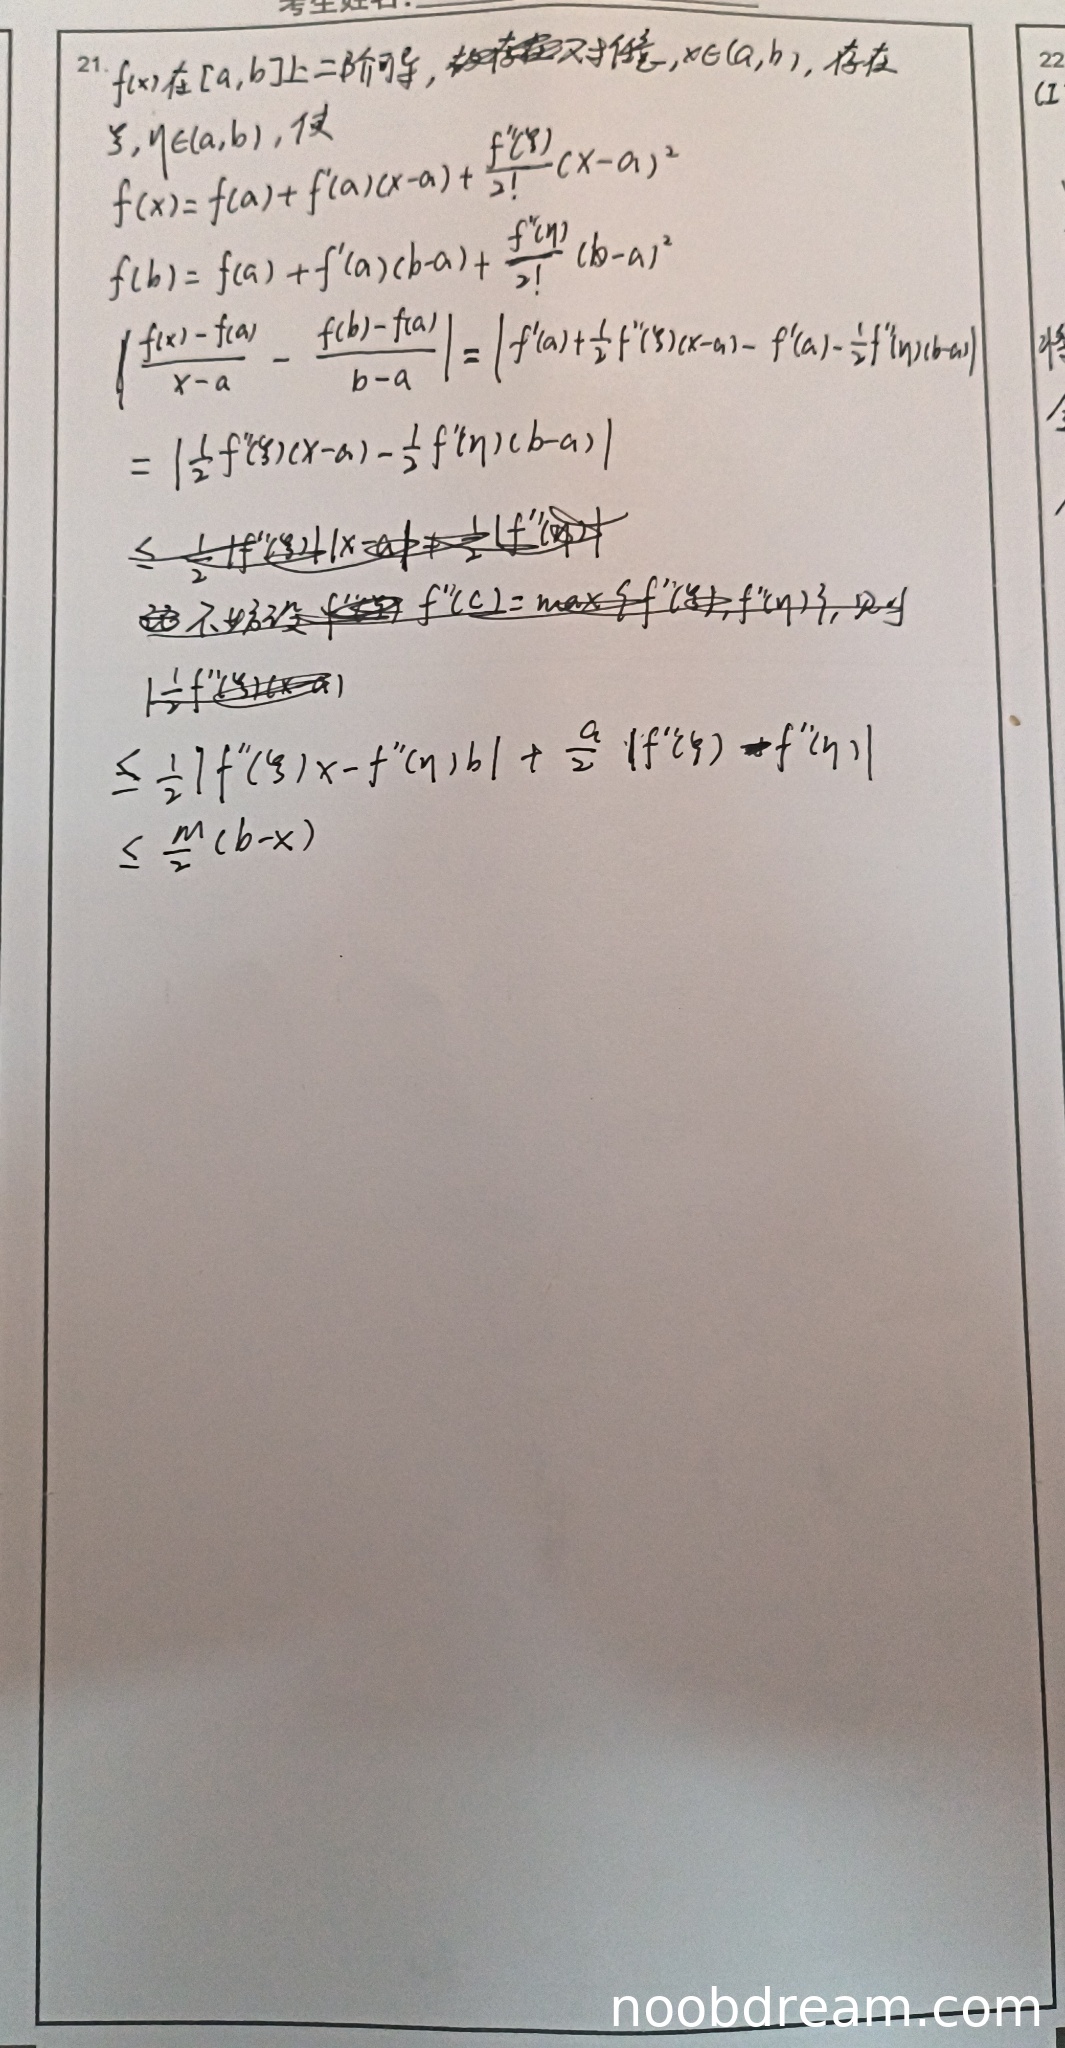 考生姓名:
21. f(x)在[a,b]上二阶可导, 对任意,x∈(a,b), 存在
ξ,η∈(a,b), 使
f(x)= f(a)+ f'(a)(x-a)+ \frac{f''(ξ)}{2!}(x-a)²
f(b)= f(a)+f'(a)(b-a)+ \frac{f''(η)}{2!}(b-a)²
|\frac{f(x)-f(a)}{x-a} - \frac{f(b)-f(a)}{b-a}| = |f'(a)+\frac{1}{2}f''(ξ)(x-a)- f'(a)-\frac{1}{2}f''(η)(b-a)|
= |\frac{1}{2}f''(ξ)(x-a)-\frac{1}{2}f''(η)(b-a)|
≤ \frac{1}{2}|f''(ξ)||x-a|+\frac{1}{2}|f''(η)|
不妨设 f''(c)=max{f''(ξ),f''(η)}, 则
|\frac{1}{2}f''(ξ)(x-a)
≤ \frac{1}{2}|f''(ξ)x-f''(η)b| + \frac{a}{2}|f''(ξ) f''(η)|
≤ \frac{M}{2}(b-x)
22
(I
noobdream.com